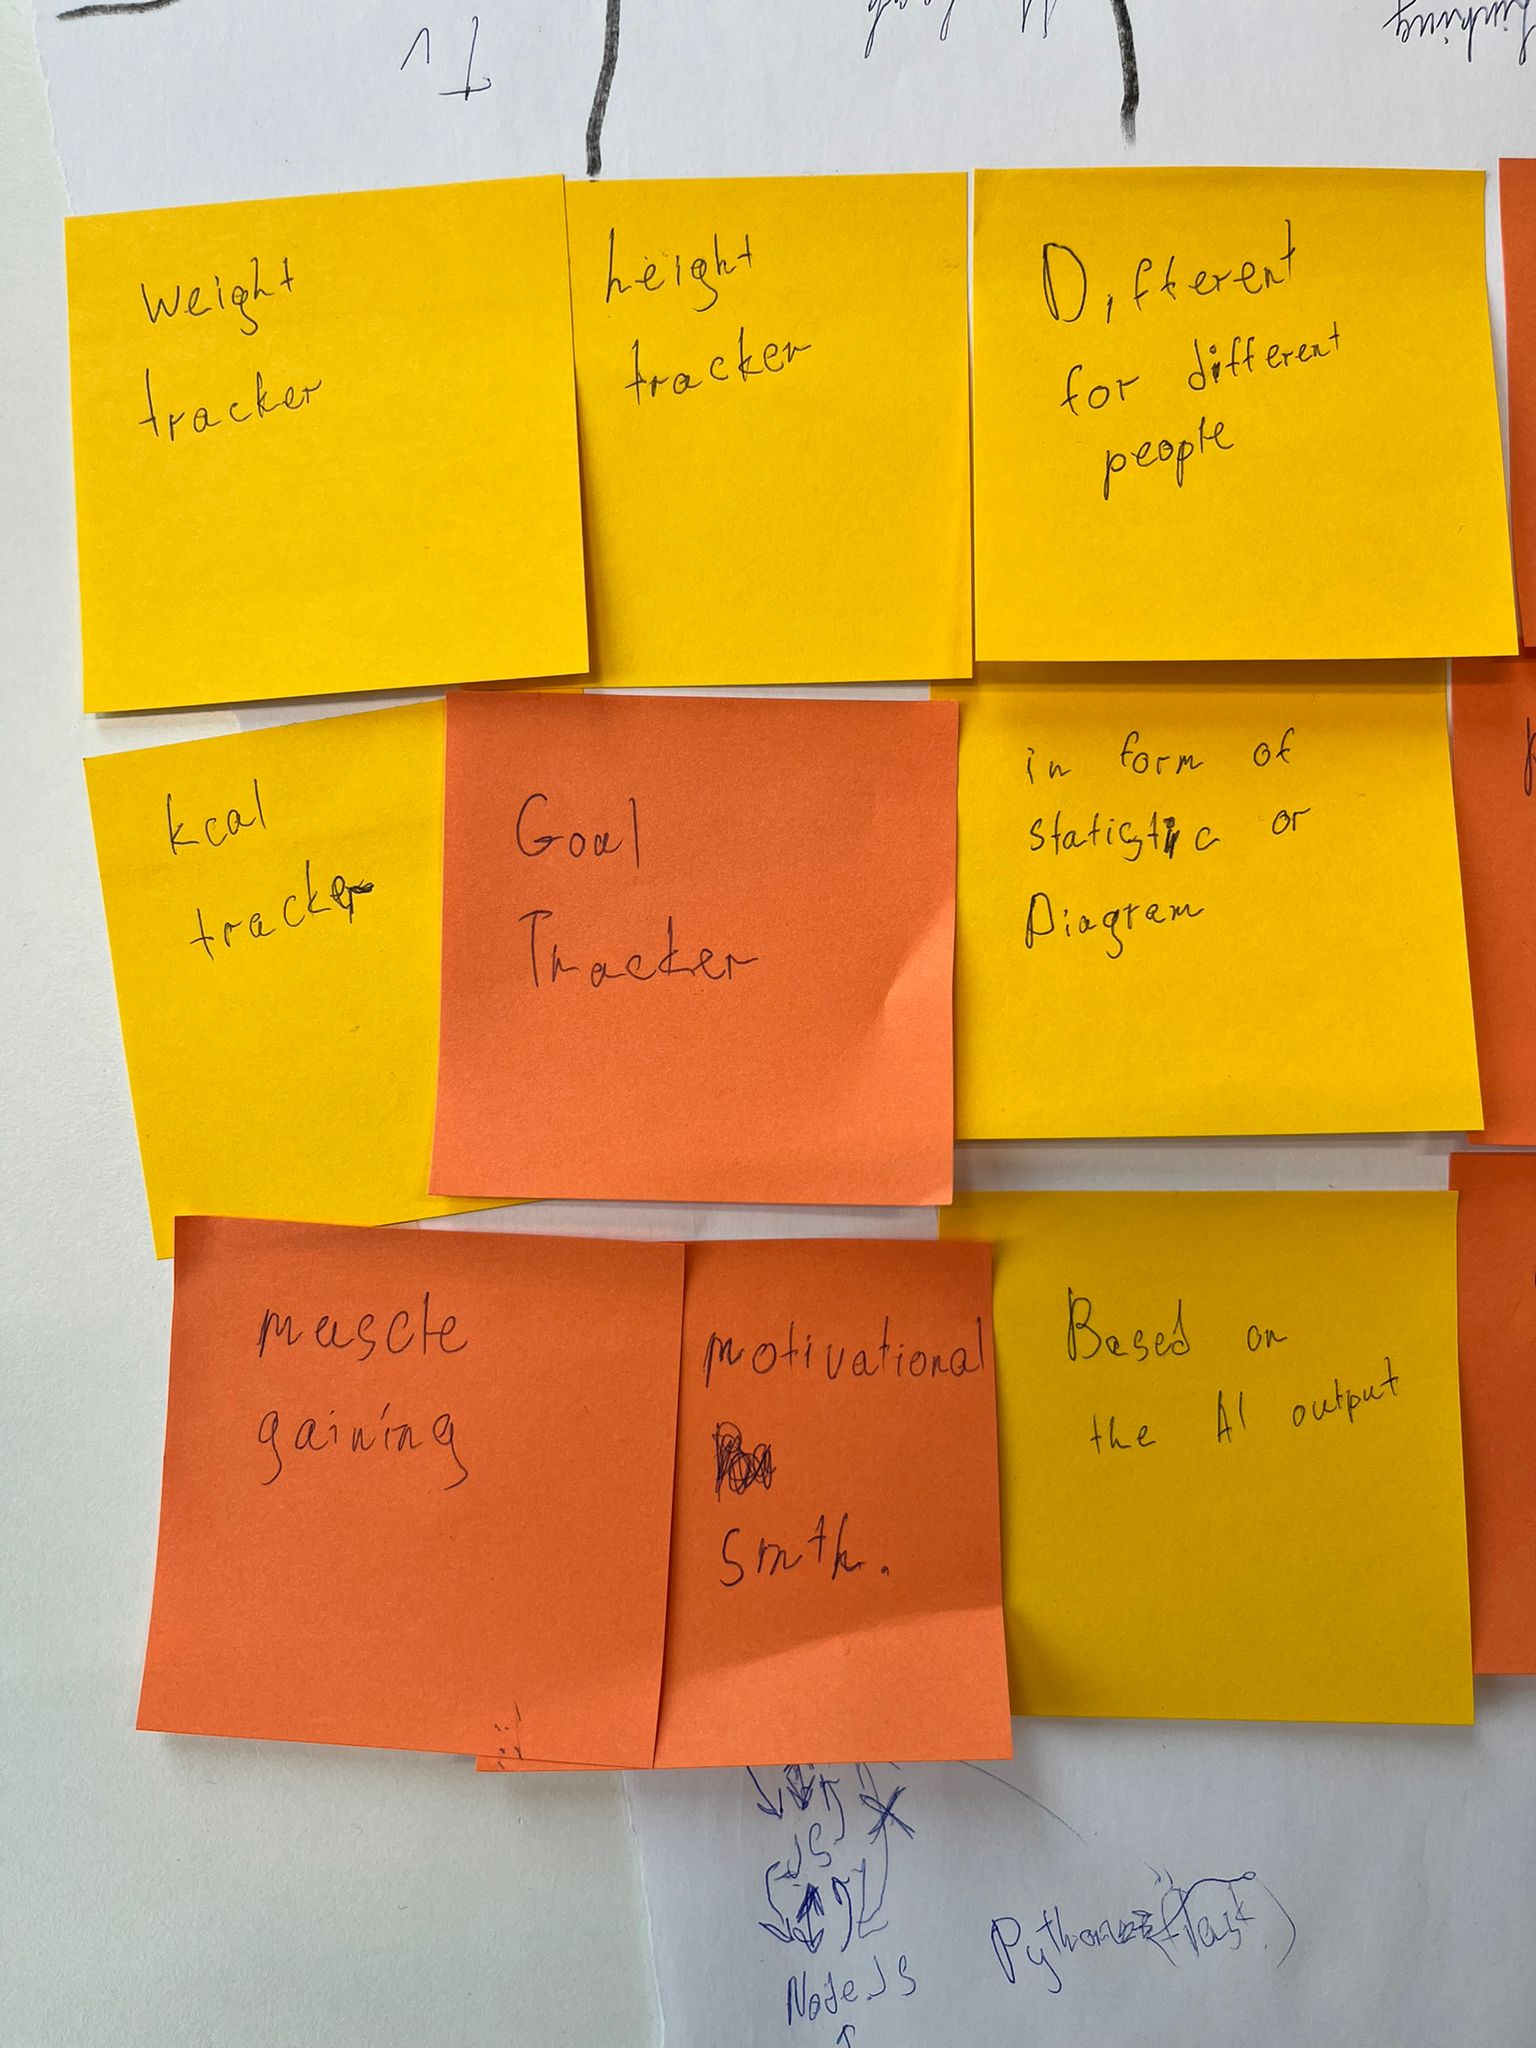 weight
tracker
height
tracker
Different
for different
people
kcal
tracker
Goal
Tracker
in form of
statistic or
Diagram
muscle
gaining
motivational
smth.
Based on
the AI output
JS
NodeJS
Python (flask)